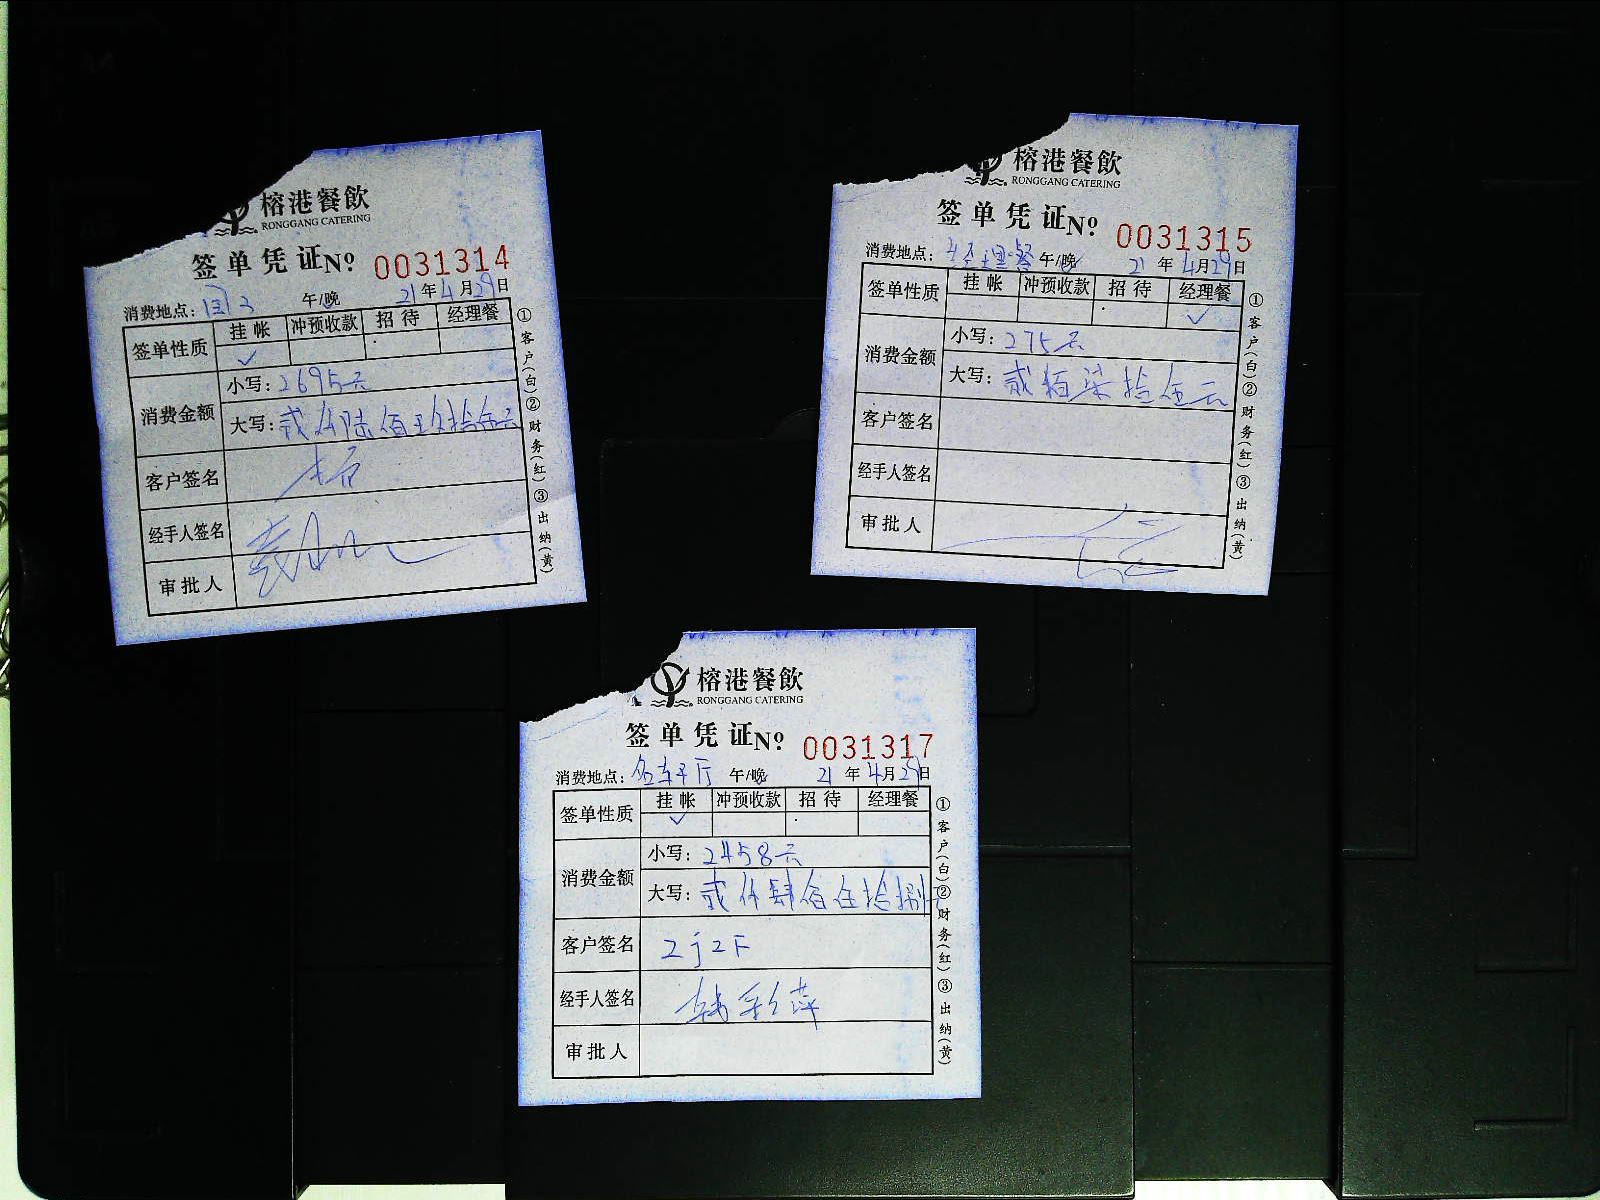 榕港餐飲
RONGGANG CATERING
签单凭证 Nº 0031314
消费地点: 午/晚 21年4月29日
签单性质 挂帐 冲预收款 招待 经理餐
✓
消费金额 小写: 2695元
大写: 贰仟陆佰玖拾伍元
客户签名
经手人签名
审批人
①客户(白)②财务(红)③出纳(黄)
榕港餐飲
RONGGANG CATERING
签单凭证 Nº 0031315
消费地点: 经理餐 午/晚 21年4月29日
签单性质 挂帐 冲预收款 招待 经理餐
✓
消费金额 小写: 275元
大写: 贰佰柒拾伍元
客户签名
经手人签名
审批人
①客户(白)②财务(红)③出纳(黄)
榕港餐飲
RONGGANG CATERING
签单凭证 Nº 0031317
消费地点: 午/晚 21年4月29日
签单性质 挂帐 冲预收款 招待 经理餐
✓
消费金额 小写: 2458元
大写: 贰仟肆佰伍拾捌元
客户签名
经手人签名
审批人
①客户(白)②财务(红)③出纳(黄)